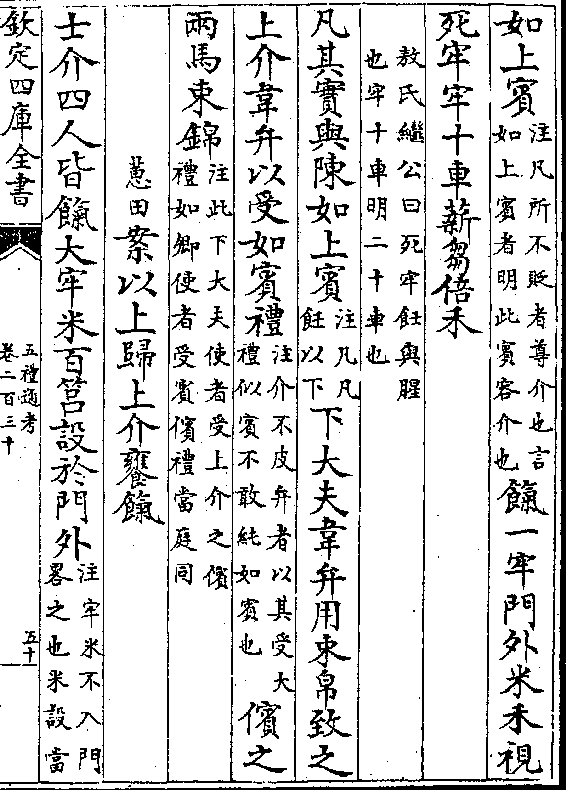 如上賓注凡所不貶者尊介也言如上賓者明此賓客介也餼一牢門外米禾視
死牢牢十車薪芻倍禾
敖氏繼公曰死牢飪與腥
也牢十車明二十車也
凡其實與陳如上賓注凡凡飪以下下大夫韋弁用束帛致之
上介韋弁以受如賓禮注介不皮弁者以其受大禮似賓不敢純如賓也儐之
兩馬束錦注此下大夫使者受上介之儐禮如卿使者受賓儐禮當庭同
蕙田案以上歸上介饔餼
士介四人皆餼大牢米百筥設於門外注牢米不入門畧之也米設當
欽定四庫全書
五禮通考
卷二百三十
五十